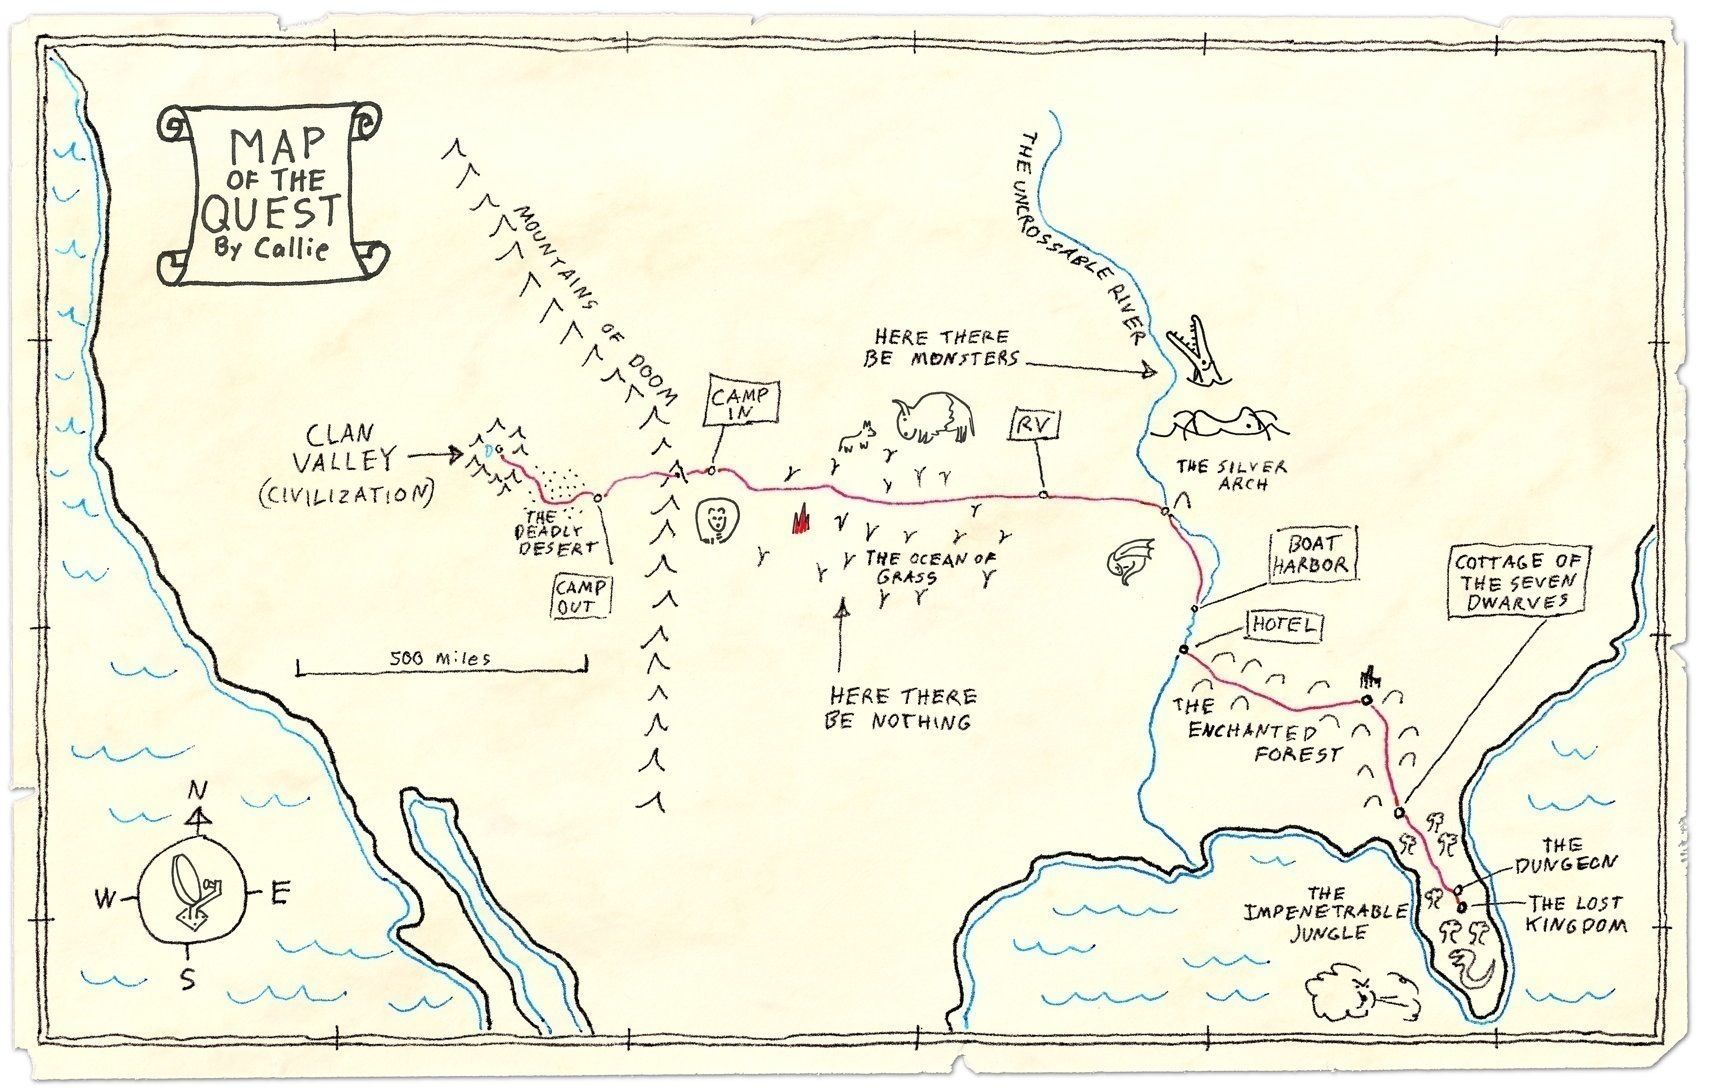 MAP
OF THE
QUEST
By Callie
MOUNTAINS OF DOOM
THE UNCROSSABLE RIVER
HERE THERE
BE MONSTERS
CLAN
VALLEY
(CIVILIZATION)
CAMP
IN
RV
THE SILVER
ARCH
THE
DEADLY
DESERT
CAMP
OUT
THE OCEAN OF
GRASS
BOAT
HARBOR
COTTAGE OF
THE SEVEN
DWARVES
HOTEL
500 Miles
HERE THERE
BE NOTHING
THE
ENCHANTED
FOREST
N
W
E
S
THE
DUNGEON
THE LOST
KINGDOM
THE
IMPENETRABLE
JUNGLE